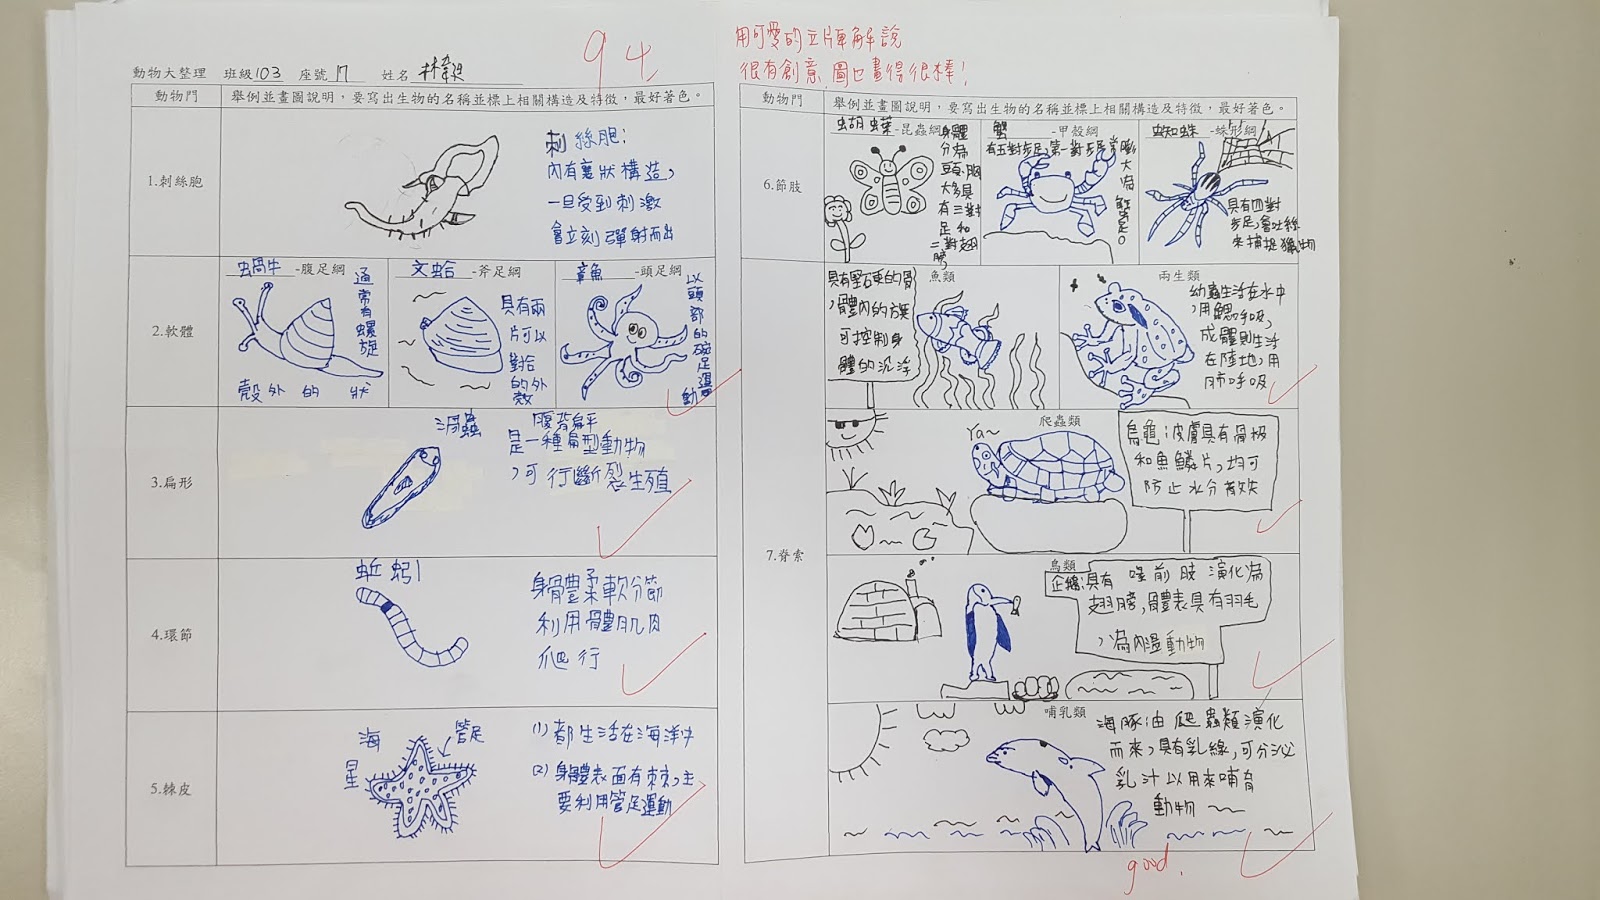 94
動物大整理 班級103 座號17 姓名林
動物門 舉例並畫圖說明,要寫出生物的名稱並標上相關構造及特徵,最好著色。
1.刺絲胞
刺絲胞:
內有囊狀構造,
一旦受到刺激
會立刻彈射而出
2.軟體
蝸牛-腹足綱
通常有螺旋
狀的外殼
文蛤-斧足綱
具有兩
片可以
對合
的外
殼
章魚-頭足綱
以頭部的碗足運動
3.扁形
渦蟲
腹背扁平
是一種扁型動物
,可行斷裂生殖
4.環節
蚯蚓
身體柔軟分節
利用體肌肉
爬行
5.棘皮
海星
管足
(1)都生活在海洋中
(2)身體表面有棘,主
要利用管足運動
用可愛的立牌來解說
很有創意,圖也畫得很棒!
動物門 舉例並畫圖說明,要寫出生物的名稱並標上相關構造及特徵,最好著色。
6.節肢
蝴蝶-昆蟲綱
身體
分為
頭、胸
大多具
有三對
足和
二對翅
膀
蟹-甲殼綱
有五對步足,第一對步足常膨
大為
螯足。
蜘蛛-蛛形綱
具有四對
步足,會吐絲
來捕捉獵物
7.脊索
魚類
具有堅硬的骨
,體內的
可控制身
體的沉浮
兩生類
幼蟲生活在水中
,用鰓呼吸,
成體則生活
在陸地,用
肺呼吸
爬蟲類
Ya~
烏龜:皮膚具有骨板
和魚鱗片,均可
防止水分散失
鳥類
企鵝:具有 前肢演化為
翅膀,體表具有羽毛
,為內溫動物
哺乳類
海豚:由爬蟲類演化
而來,具有乳線,可分泌
乳汁以用來哺育
動物~~
good.